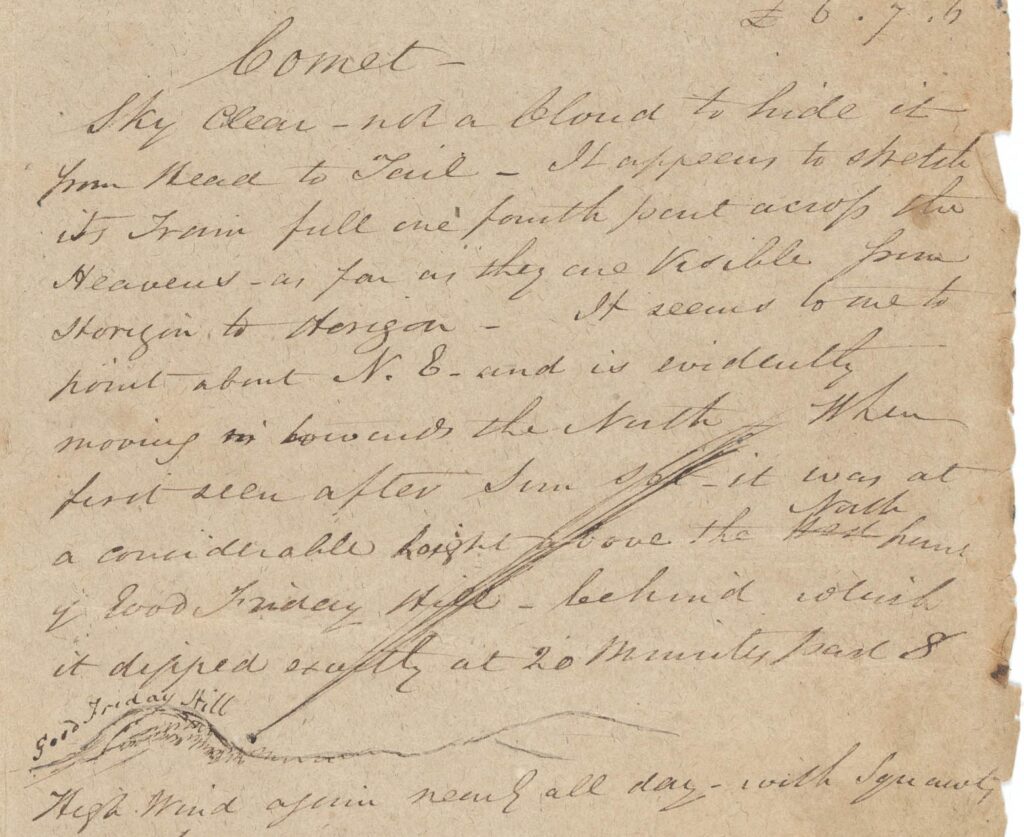 £ 6 . 7 . 6
Comet -
Sky Clear - not a Cloud to hide it
from Head to Tail - It appears to stretch
its Train full one fourth part across the
Heavens - as far as they are Visible from
Horizon to Horizon - It seems to me to
point about N. E - and is evidently
moving towards the North When
first seen after Sun Set - it was at
North
a considerable height above the West
of Good Friday Hill - behind which
it dipped exactly at 20 Minutes past 8
Good Friday Hill
High Wind again nearly all day - with Squally